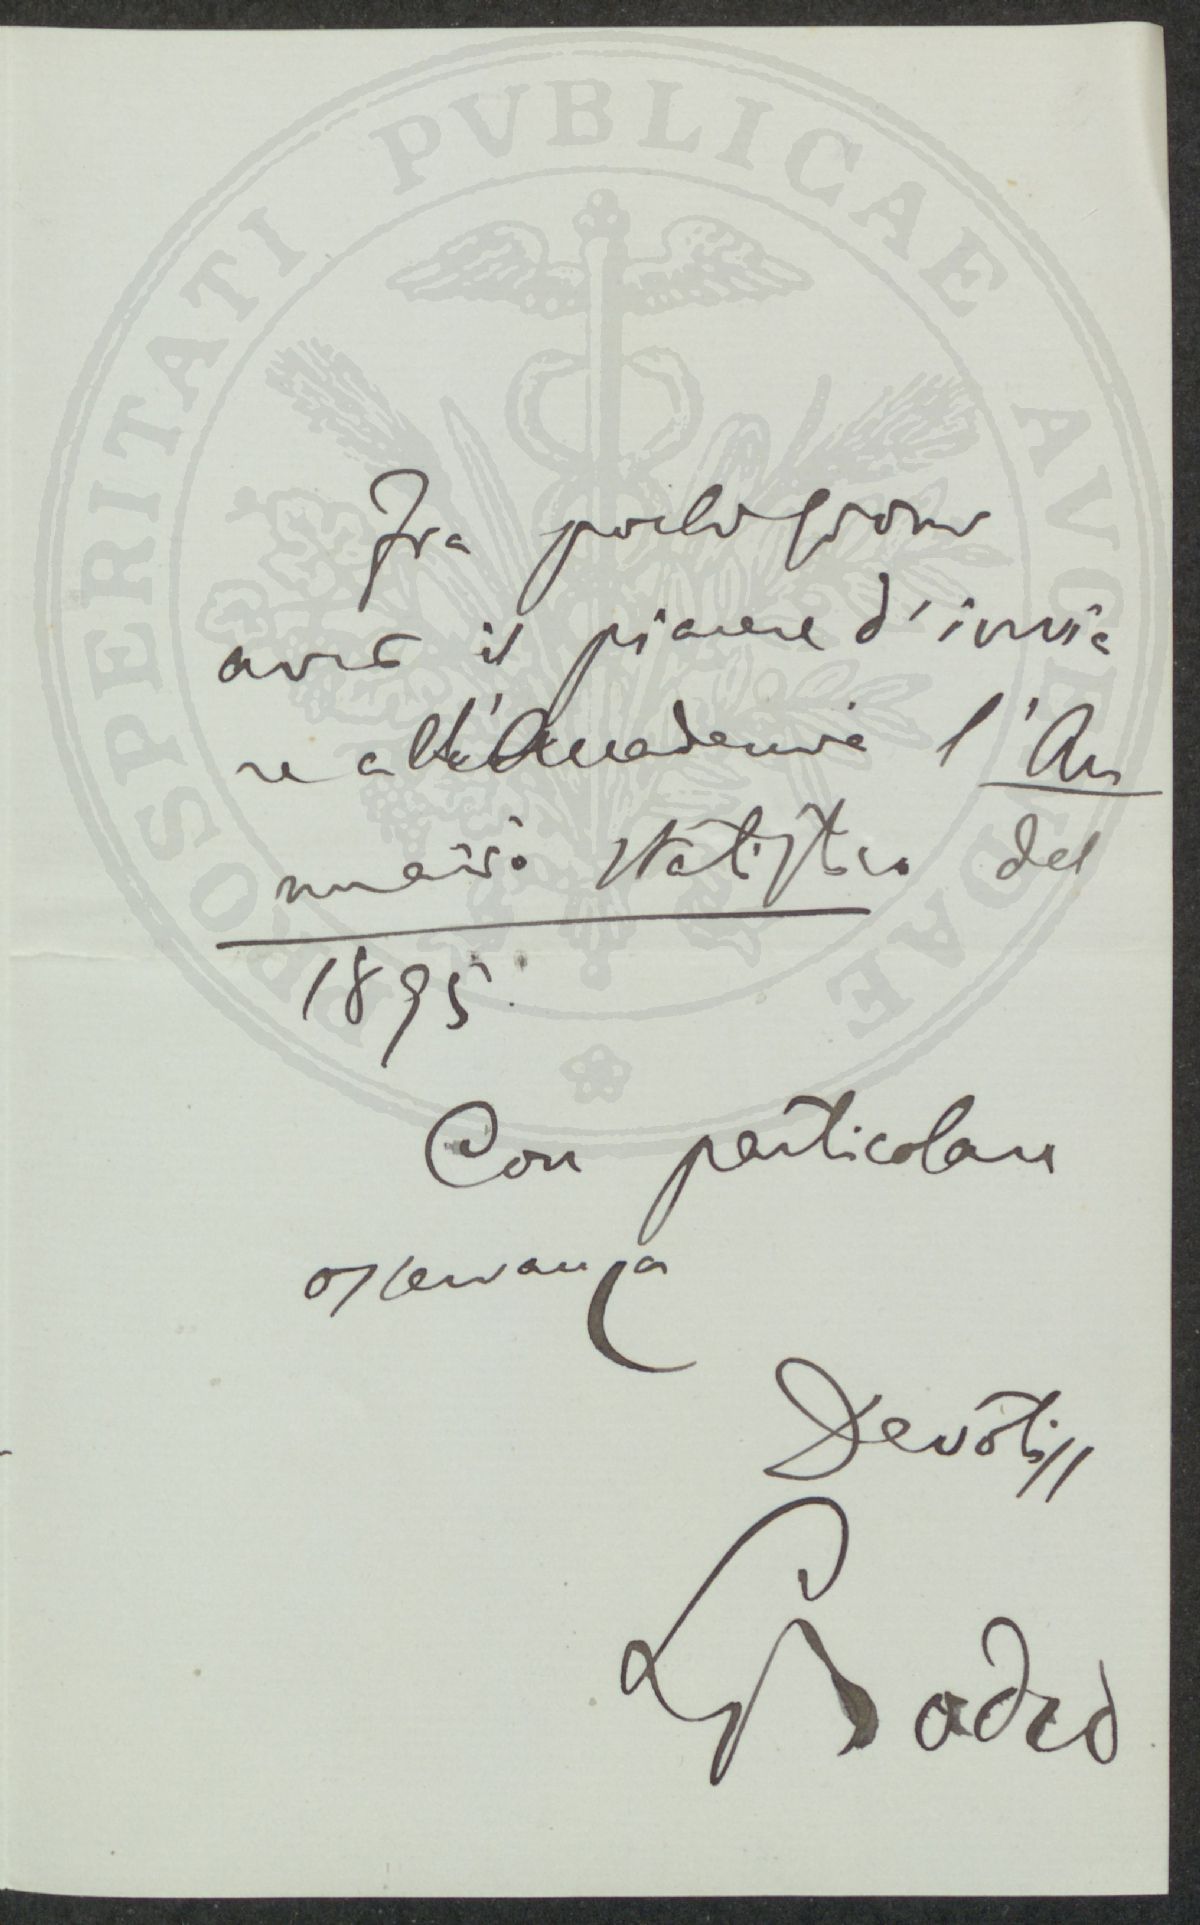 PROSPERITATI PVBLICAE AVGENDAE
Fra pochi giorni
avrò il piacere d'invia
re all'Accademia l'An
nuario statistico del
1895.
Con particolare
osservanza
Devotiss
LBodio